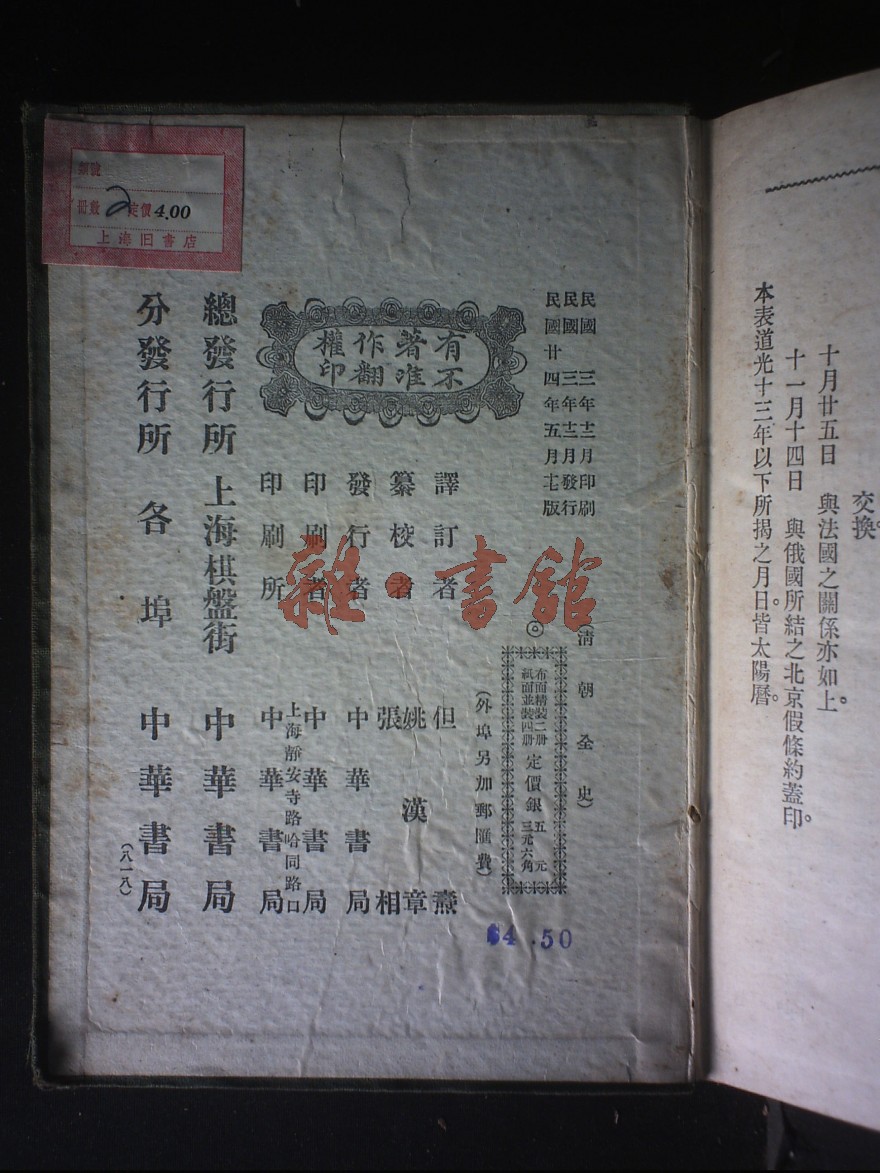 交換。
十月廿五日　與法國之關係亦如上。
十一月十四日　與俄國所結之北京假條約蓋印。
本表道光十三年以下所揭之月日。皆太陽曆。
類號
冊數 2 定價 4.00
上海旧書店
民國三年十二月印刷
民國三年十二月發行
民國廿四年五月十七版
有著作權
不准翻印
(清朝全史)
布面精裝二册 定價銀 五元
紙面並裝四册 定價銀 三元六角
(外埠另加郵匯費)
譯訂者 但燾
纂校者 姚漢章
張相
發行者 中華書局
印刷者 中華書局
上海靜安寺路哈同路口
印刷所 中華書局
總發行所 上海棋盤街 中華書局
分發行所 各埠 中華書局
(八一八)
$4.50
雜·書館